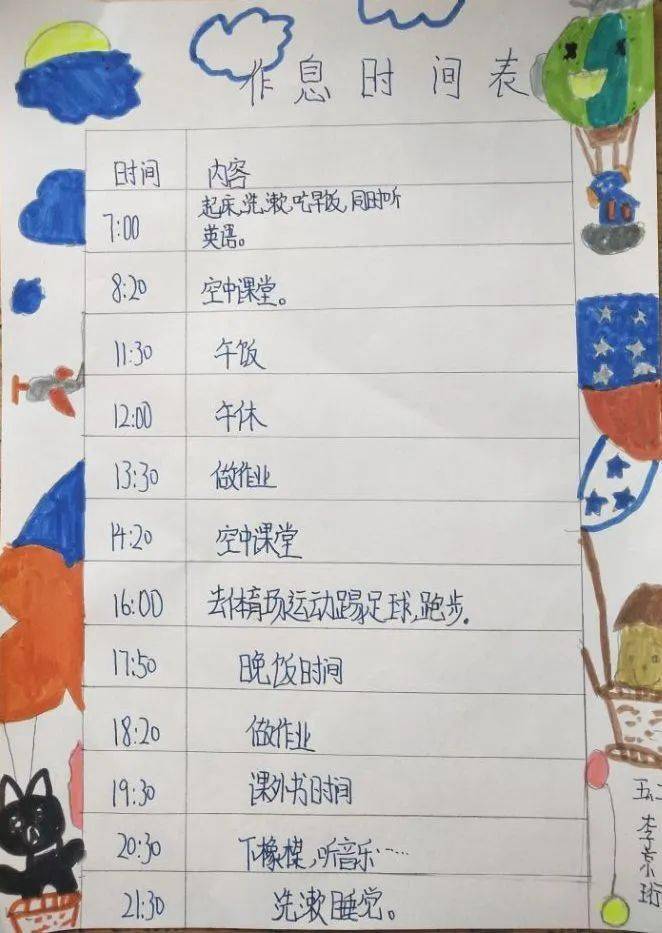 作息时间表
时间 内容
7:00 起床,洗漱,吃早饭,同时听
英语。
8:20 空中课堂。
11:30 午饭
12:00 午休
13:30 做作业
14:20 空中课堂
16:00 去体育场运动踢足球,跑步。
17:50 晚饭时间
18:20 做作业
19:30 课外书时间
20:30 下橡棋,听音乐……
21:30 洗漱睡觉。
五二
李京珩